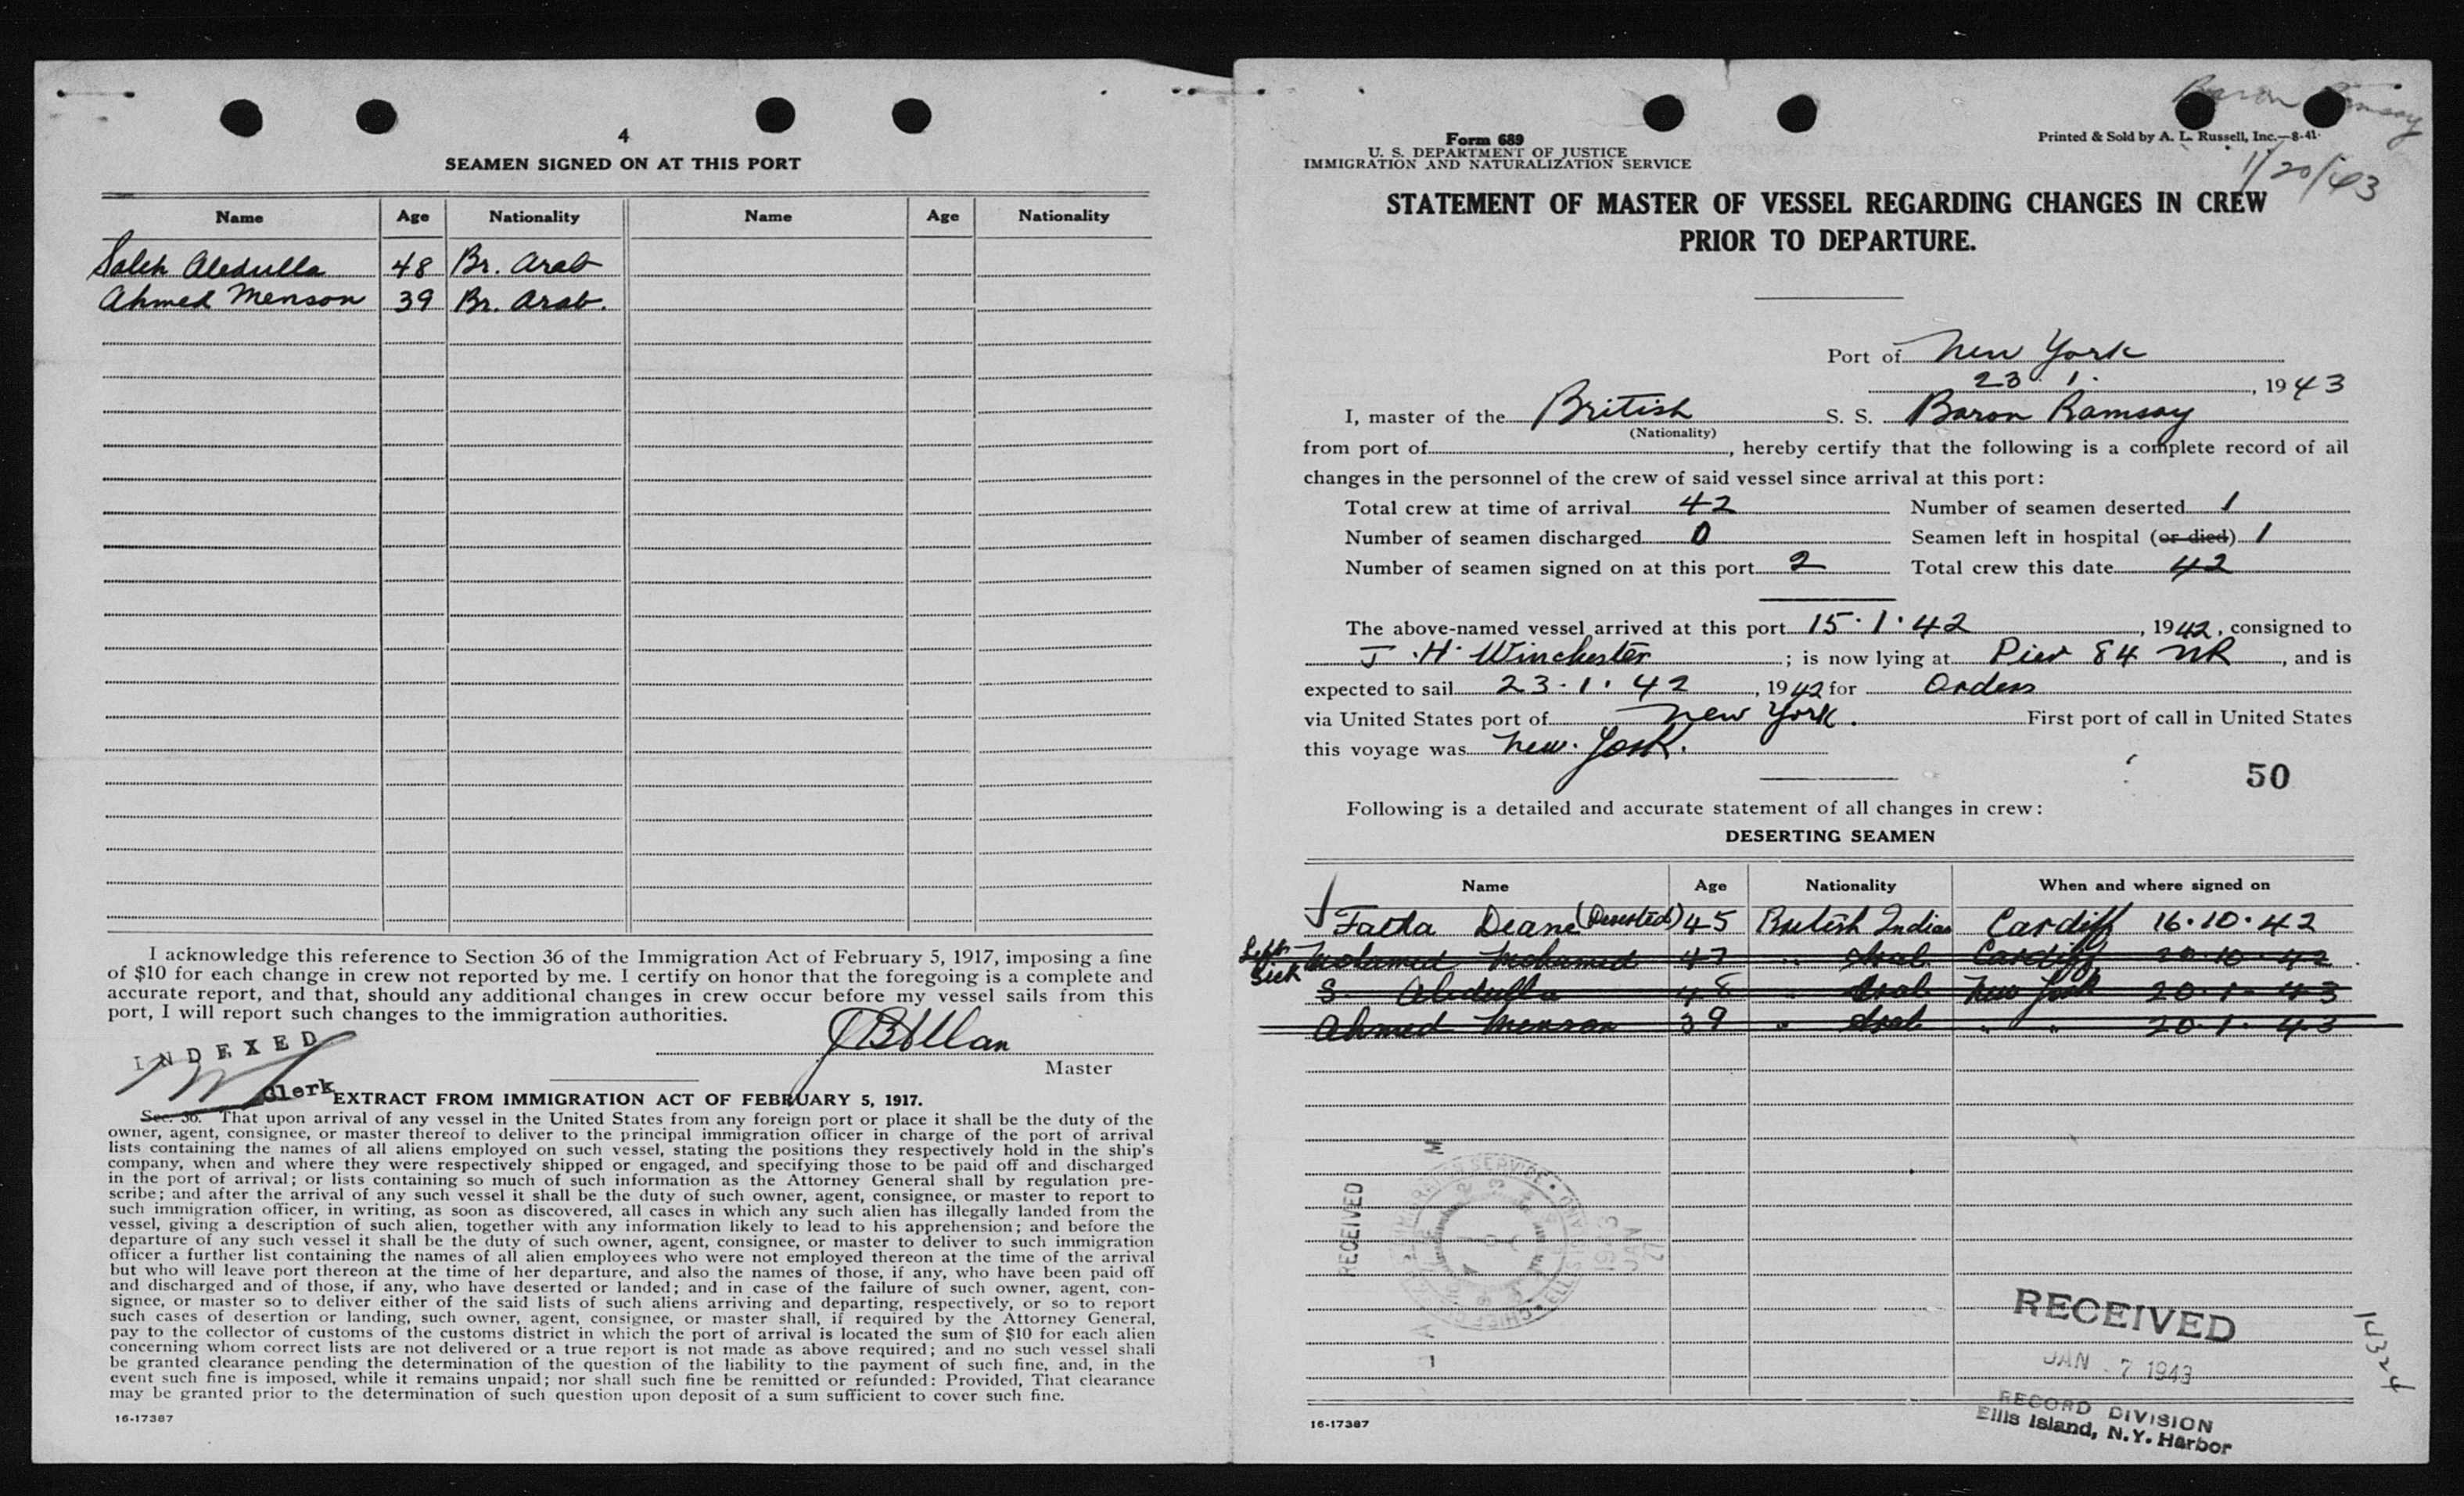 4
SEAMEN SIGNED ON AT THIS PORT
Name Age Nationality Name Age Nationality
Saleh Abdulla 48 Br. Arab
Ahmed Menson 39 Br. Arab.
I acknowledge this reference to Section 36 of the Immigration Act of February 5, 1917, imposing a fine
of $10 for each change in crew not reported by me. I certify on honor that the foregoing is a complete and
accurate report, and that, should any additional changes in crew occur before my vessel sails from this
port, I will report such changes to the immigration authorities.
INDEXED
Master
Clerk
EXTRACT FROM IMMIGRATION ACT OF FEBRUARY 5, 1917.
Sec. 36. That upon arrival of any vessel in the United States from any foreign port or place it shall be the duty of the
owner, agent, consignee, or master thereof to deliver to the principal immigration officer in charge of the port of arrival
lists containing the names of all aliens employed on such vessel, stating the positions they respectively hold in the ship's
company, when and where they were respectively shipped or engaged, and specifying those to be paid off and discharged
in the port of arrival; or lists containing so much of such information as the Attorney General shall by regulation pre-
scribe; and after the arrival of any such vessel it shall be the duty of such owner, agent, consignee, or master to report to
such immigration officer, in writing, as soon as discovered, all cases in which any such alien has illegally landed from the
vessel, giving a description of such alien, together with any information likely to lead to his apprehension; and before the
departure of any such vessel it shall be the duty of such owner, agent, consignee, or master to deliver to such immigration
officer a further list containing the names of all alien employees who were not employed thereon at the time of the arrival
but who will leave port thereon at the time of her departure, and also the names of those, if any, who have been paid off
and discharged and of those, if any, who have deserted or landed; and in case of the failure of such owner, agent, con-
signee, or master so to deliver either of the said lists of such aliens arriving and departing, respectively, or so to report
such cases of desertion or landing, such owner, agent, consignee, or master shall, if required by the Attorney General,
pay to the collector of customs of the customs district in which the port of arrival is located the sum of $10 for each alien
concerning whom correct lists are not delivered or a true report is not made as above required; and no such vessel shall
be granted clearance pending the determination of the question of the liability to the payment of such fine, and, in the
event such fine is imposed, while it remains unpaid; nor shall such fine be remitted or refunded: Provided, That clearance
may be granted prior to the determination of such question upon deposit of a sum sufficient to cover such fine.
16-17387
Baron Ramsay
1/20/43
Form 689
U. S. DEPARTMENT OF JUSTICE
IMMIGRATION AND NATURALIZATION SERVICE
Printed & Sold by A. L. Russell, Inc.—8-41
STATEMENT OF MASTER OF VESSEL REGARDING CHANGES IN CREW
PRIOR TO DEPARTURE.
Port of New York
23.1. , 1943
I, master of the British S. S. Baron Ramsay
(Nationality)
from port of , hereby certify that the following is a complete record of all
changes in the personnel of the crew of said vessel since arrival at this port:
Total crew at time of arrival 42 Number of seamen deserted 1
Number of seamen discharged 0 Seamen left in hospital (or died) 1
Number of seamen signed on at this port 2 Total crew this date 42
The above-named vessel arrived at this port 15.1.42 , 1942, consigned to
J. H. Winchester ; is now lying at Pier 84 NR , and is
expected to sail 23.1.42 , 1942 for Orders
via United States port of New York. First port of call in United States
this voyage was New York.
50
Following is a detailed and accurate statement of all changes in crew:
DESERTING SEAMEN
Name Age Nationality When and where signed on
Fatha Deane (Deserted) 45 British Indian Cardiff 16.10.42
Left Sick Mohamed Mohamed 47 " Arab Cardiff 20.10.42
S. Abdulla 48 " Arab New York 20.1.43
Ahmed Menson 39 " Arab " " 20.1.43
RECEIVED
1943 JAN 27
RECEIVED
JAN 7 1943
RECORD DIVISION
Ellis Island, N.Y. Harbor
14324
16-17387